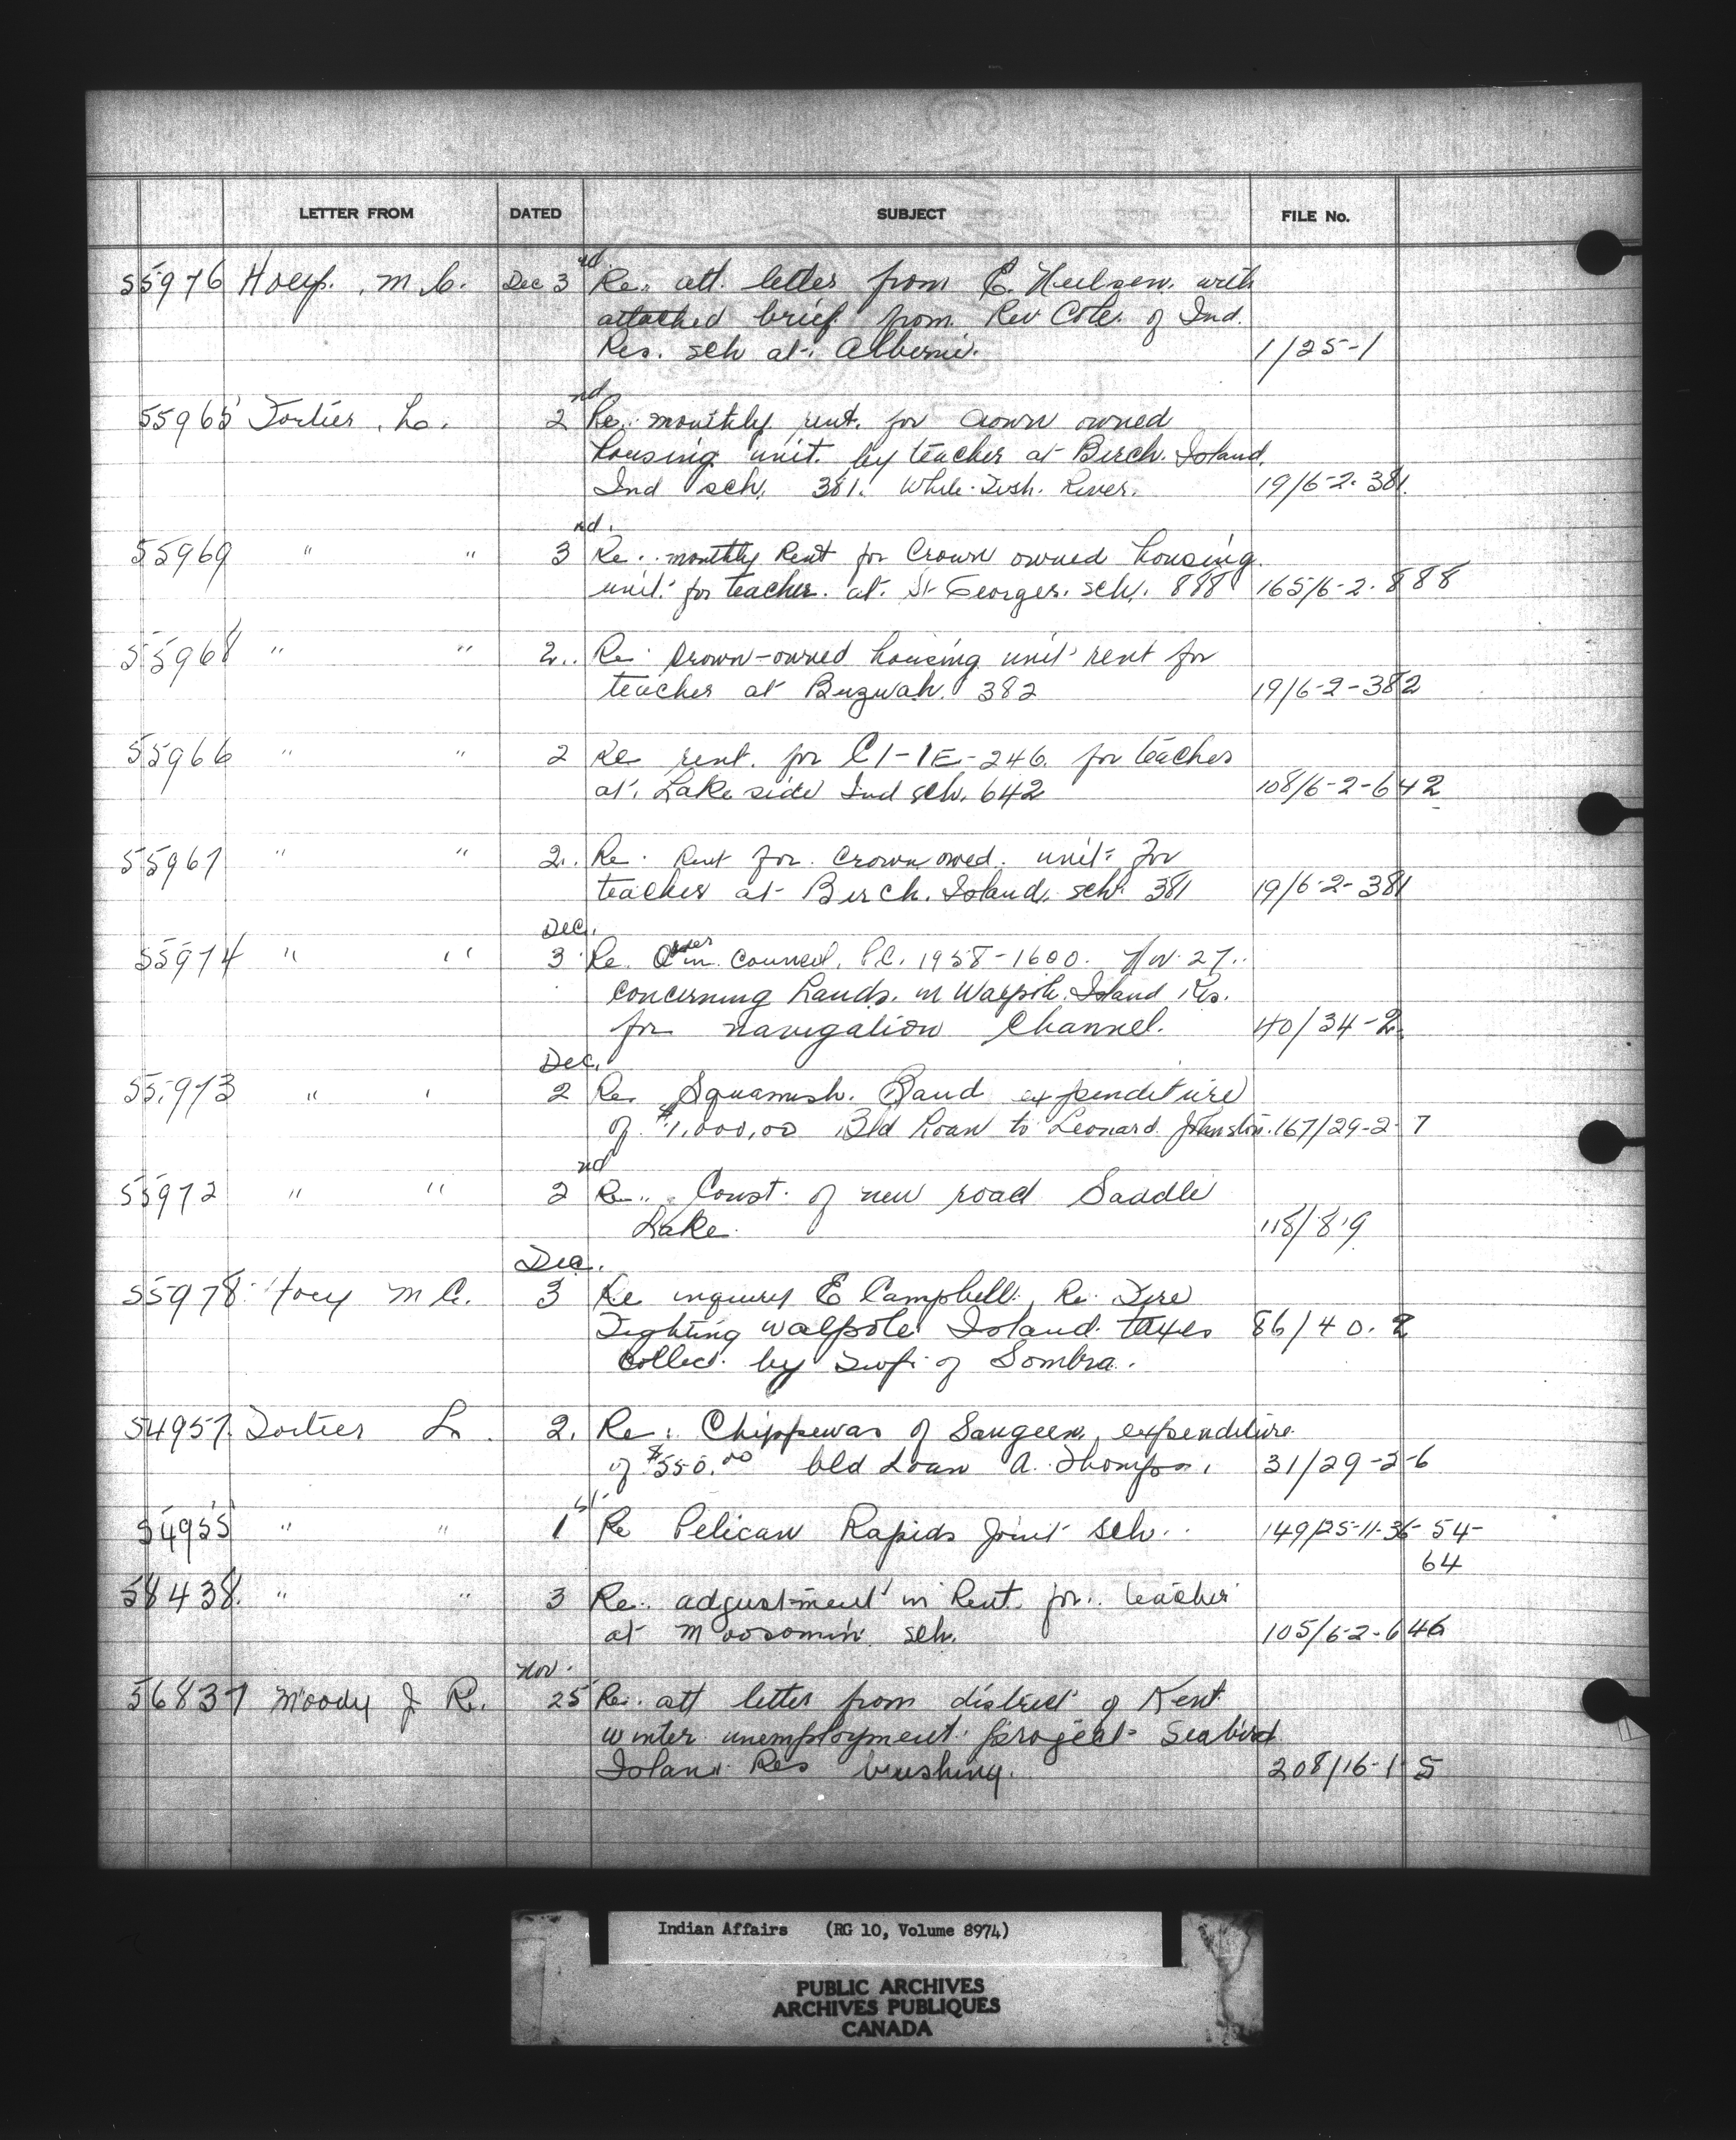 LETTER FROM DATED SUBJECT FILE No.
55976 Hoey. M.C. Dec 3rd Re. att. letter from E. with
attached brief from Rev Cote. of Ind.
Res. sch at. Alberni. 1/25-1
55965 Fortier. L. 2nd Re. monthly rent. for crown owned
housing unit. by teacher at Birch. Island.
Ind sch. 381. White Fish. River. 19/6-2-381.
55969 " " 3rd. Re. monthly Rent for Crown owned housing
unit. for teacher. at. St Georges. sch. 888 165/6-2-888
55968 " " 2. Re. Crown-owned housing unit rent for
teacher at Buzwah. 382 19/6-2-382
55966 " " 2 Re rent. for C1-1E-246. for teacher
at. Lake side Ind sch. 642 108/6-2-642
55967 " " 2. Re. Rent for. crown owed. unit for
teacher at Birch. Island. sch. 381 19/6-2-381
Dec.
55974 " " 3 Re. Order in. Council. P.C. 1958-1600. Nov. 27.
concerning Lands. in Walpole. Island Res.
for navigation Channel. 40/34-2.
Dec.
55973 " " 2 Re. Squamish. Band expenditure
of $1,000,00 Bld Loan to Leonard Johnston. 167/29-2-7
55972 " " 2nd Re. Const. of new road Saddle
Lake. 118/8-9
Dec.
55978 Hoey M C. 3 Re inquiry E Campbell. Re. Fire
Fighting Walpole Island. taxes 86/40.2
collect. by Twp. of Sombra.
54957. Fortier L. 2. Re: Chippewas of Saugeen, expenditure
of $550.00 bld Loan A. Thompson. 31/29-2-6
54955 " " 1st Re Pelican Rapids Joint sch. 149/25-11-36-54-
64
58438. " " 3 Re. adjustment in Rent. for. teacher
at Moosomin. sch. 105/6-2-646
Nov.
56837 Moody J R. 25 Re. att letter from district of Kent
winter unemployment. project Seabird
Island Res brushing. 208/16-1-5
Indian Affairs (RG 10, Volume 8974)
PUBLIC ARCHIVES
ARCHIVES PUBLIQUES
CANADA